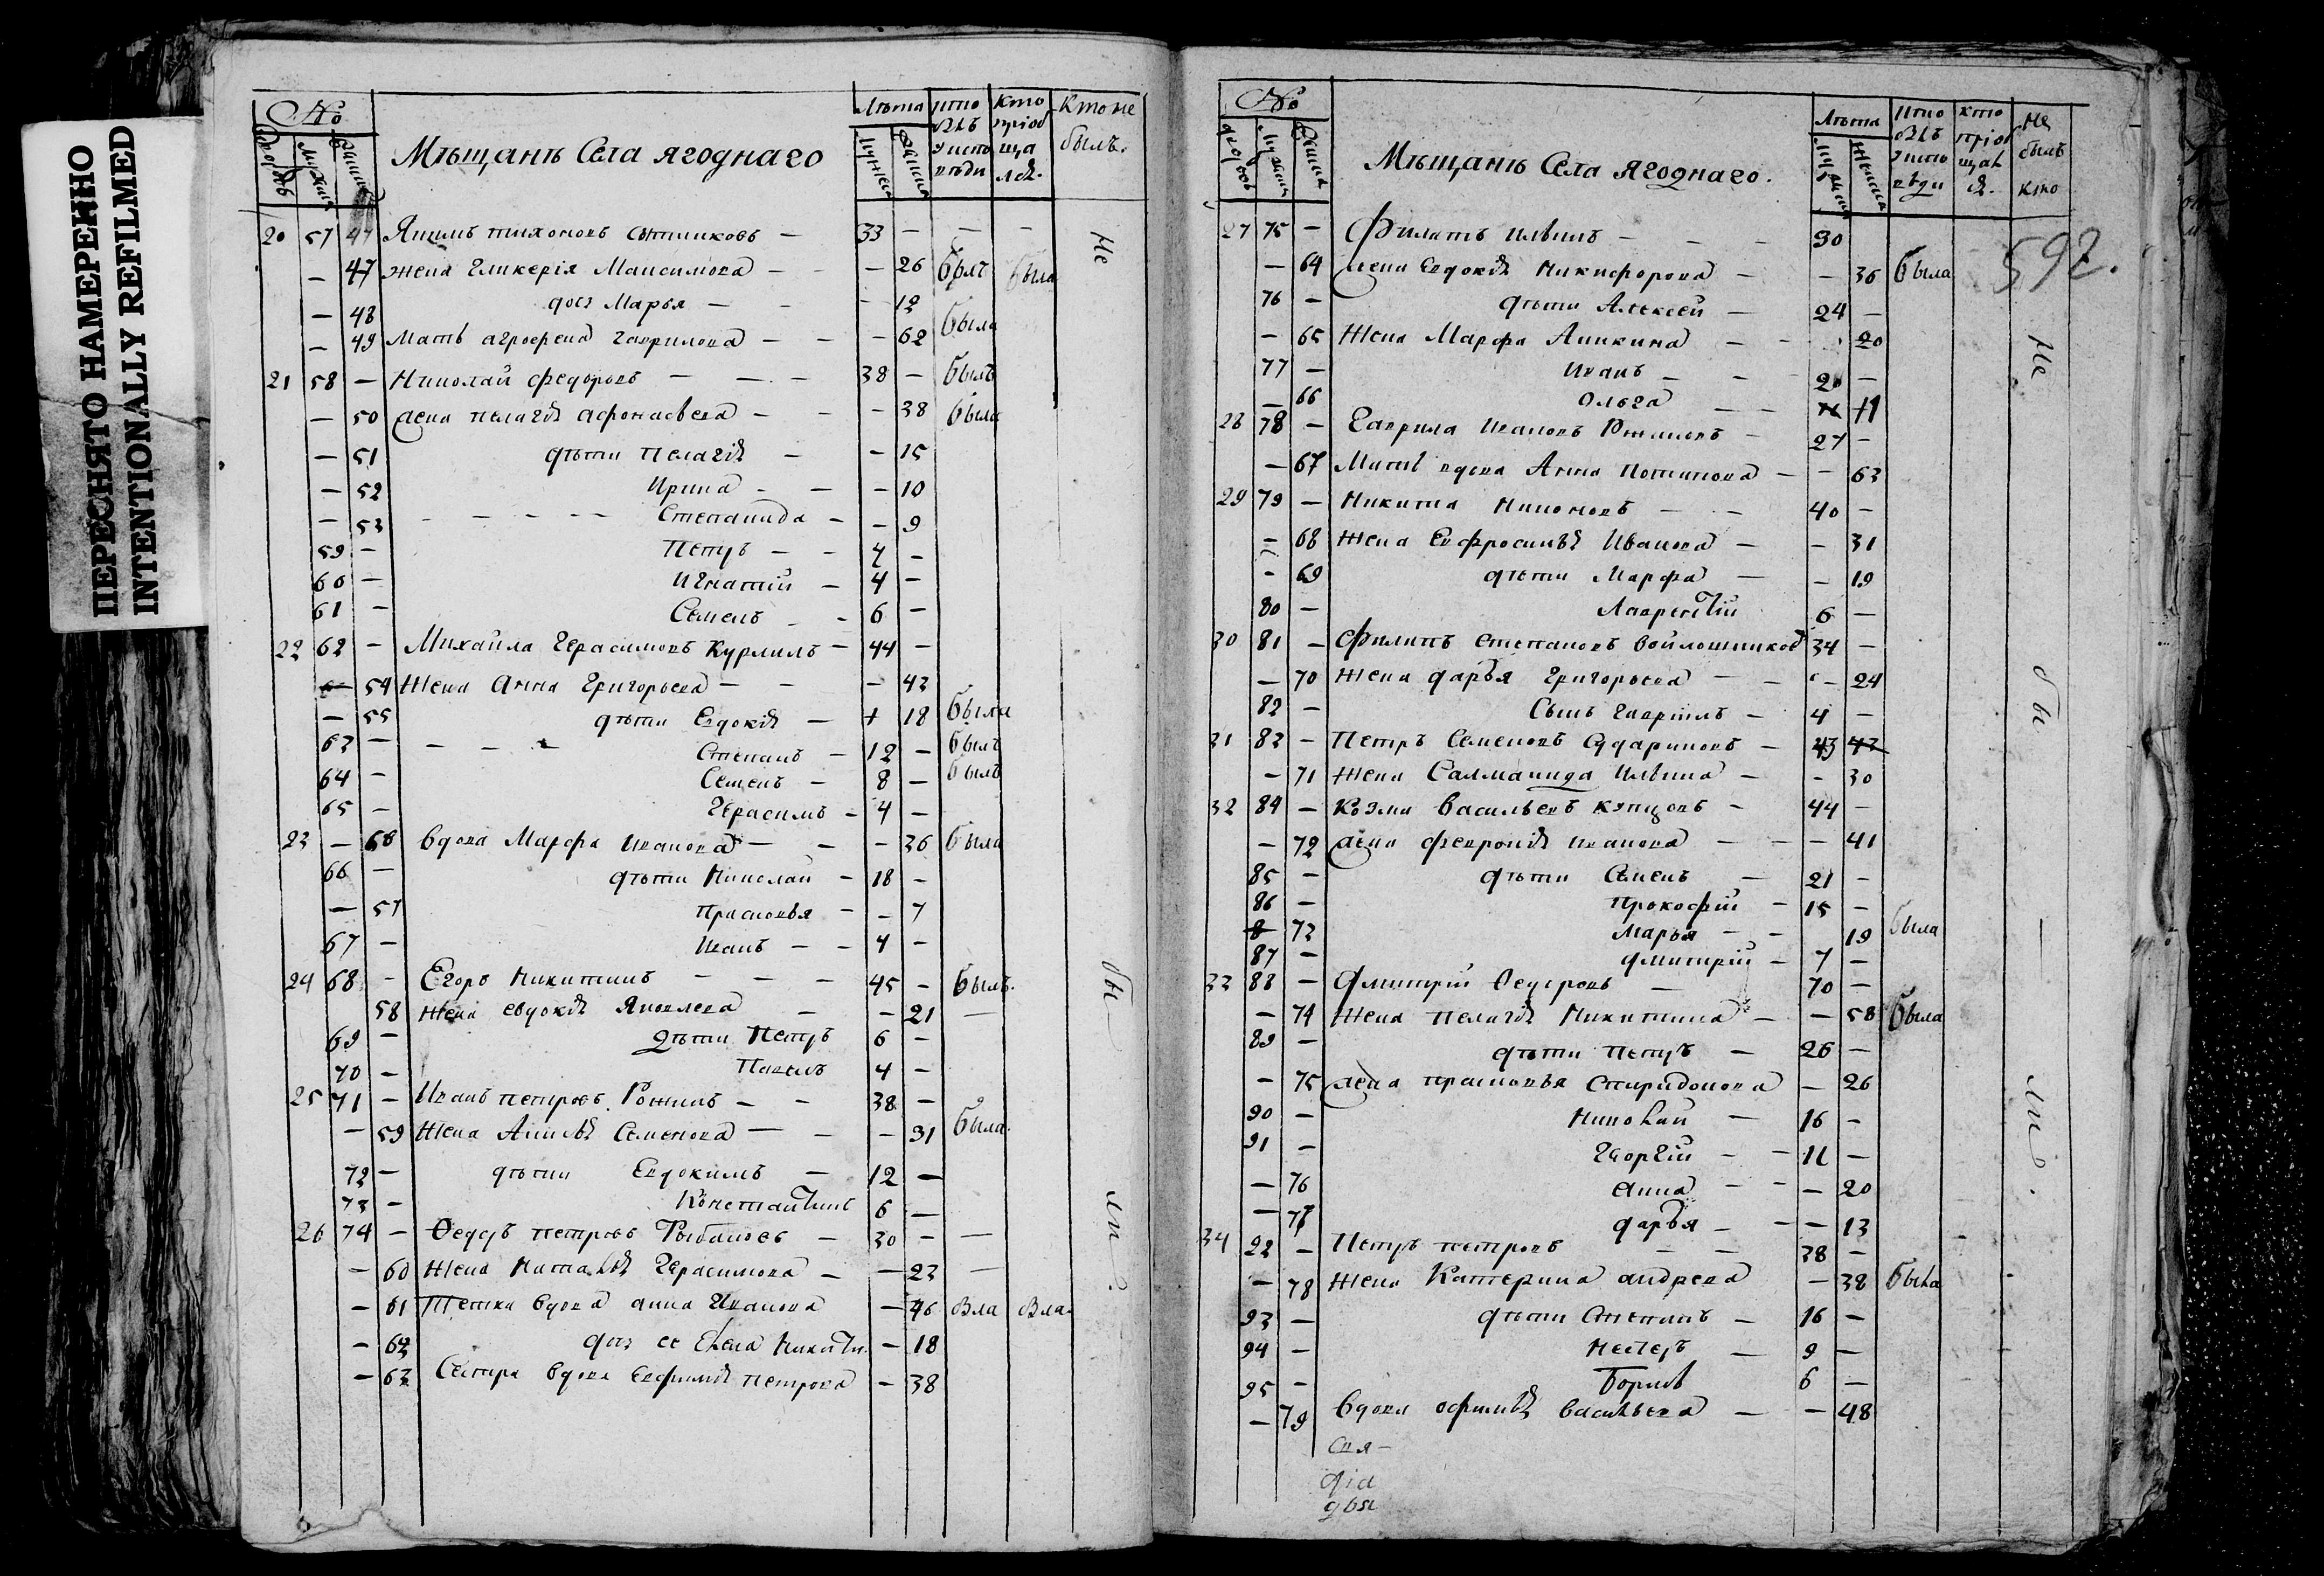 ПЕРЕСНЯТО НАМЕРЕННО
INTENTIONALLY REFILMED
№
Мѣщанъ Села ягоднаго
Лѣта
кто не
былъ.
20 57 47 тихоновъ — 33 — — —
— 47 жена гликерія Максимова — — 26 былъ была
— 48 дочь Марья — — 12
— 49 Мать агрофена гаврилова — — 62 была
21 58 — Николай федоровъ — 38 — былъ
— 50 жена пелагія афонасьева — — 38 была
— 51 дѣти Пелагія — — 15
— 52 Ирина — — 10
— 53 Степанида — — 9
59 — Петръ — — 4 —
60 — Игнатій — 4 —
61 — Семенъ — 6 —
22 62 — Михайла Герасимовъ — 44 —
54 Жена Анна Григорьева — — 43
— 55 дѣти Евдокія — 18 была
63 — Степанъ — 12 — былъ
64 — Семенъ — 8 — былъ
65 — Герасимъ — 4 —
23 — вдова Марфа иванова — — 36 была
66 — дѣти Николай — 18 —
— 57 Прасковья — — 7
67 — Иванъ — — 4 —
24 68 — Егоръ Никитинъ — 45 — былъ.
58 жена евдокія Яковлева — — 21 —
69 — дѣти Петръ 6 —
70 — Павелъ 4 —
25 71 — Иванъ петровъ — — 38 —
— 59 Жена Семенова — — 31 была.
72 — дѣти Евдокимъ — 12 —
73 — Константинъ 6 —
26 74 — Ѳедоръ петровъ — 30 — —
— 60 Жена Наталья Герасимова — — 23 —
— 61 Тетка вдова анна Иванова — 46
— 62 дочь ее Елена — 18
— 63 Сестра вдова Ефимія петрова — 38
Не
бы
лъ
№
Мѣщанъ Села Ягоднаго.
Лѣта
не
былъ
кто
592.
27 75 — Филатъ ильинъ — — — 30
— 64 жена Евдокія Никифорова — — 36 была
76 — дѣти Алексей — 24 —
— 65 Жена Марфа Аникина — 20
77 — Иванъ — — —
— 66 Ольга — — 11
28 78 — Гаврила ивановъ — 27 —
— 67 Мать вдова Анна — — 63
29 79 — Никита — — 40 —
— 68 Жена Ефросинья Иванова — — 31
— 69 дѣти Марфа — — 19
80 — Лаврентій 6 —
30 81 — Филипъ степановъ войлошниковъ 34 —
— 70 Жена дарья Григорьева — — 24
82 — Сынъ гаврилъ — 4 —
31 83 — Петръ Семеновъ — 43
— 71 Жена Саломанида ильина — — 30
32 84 — Козма васильевъ — 44 —
— 72 жена февронія иванова — — — 41
85 — дѣти Семенъ — 21 —
86 — Прокофій — 15 —
73 Марья — — 19 была
87 — дмитрій — 7 —
33 88 — Дмитрій Ѳедоровъ — 70 —
— 74 Жена пелагія Никитина — — 58 была
89 — дѣти петръ — 26 —
— 75 жена прасковья спиридонова — 26
90 — Николай — 16 —
91 — Георгій — — 11 —
— 76 анна — — — 20
— 77 дарья — — — 13
34 92 — Петръ петровъ — — 38 —
— 78 Жена Катерина андреева — 38 была
93 — дѣти Степанъ — 16 —
94 — Нестеръ — 9 —
95 — Борисъ 6 —
— 79 вдова васильева — — 48
Не
бы
лъ.